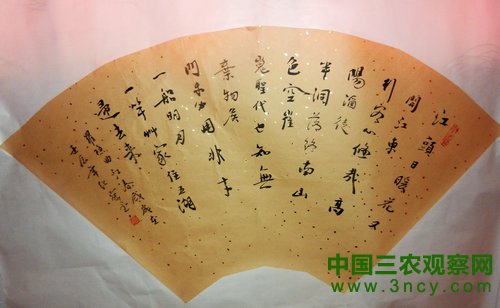 江頭日暖花又
開江東
行客心悠哉高
陽酒徒
半凋落終南山
色空崔
嵬聖代也知無
棄物侯
門未必用非才
一船明月
一竿竹家住五湖
歸去來
曲江春感歲在
壬辰年
中国三农观察网
www.3ncy.com